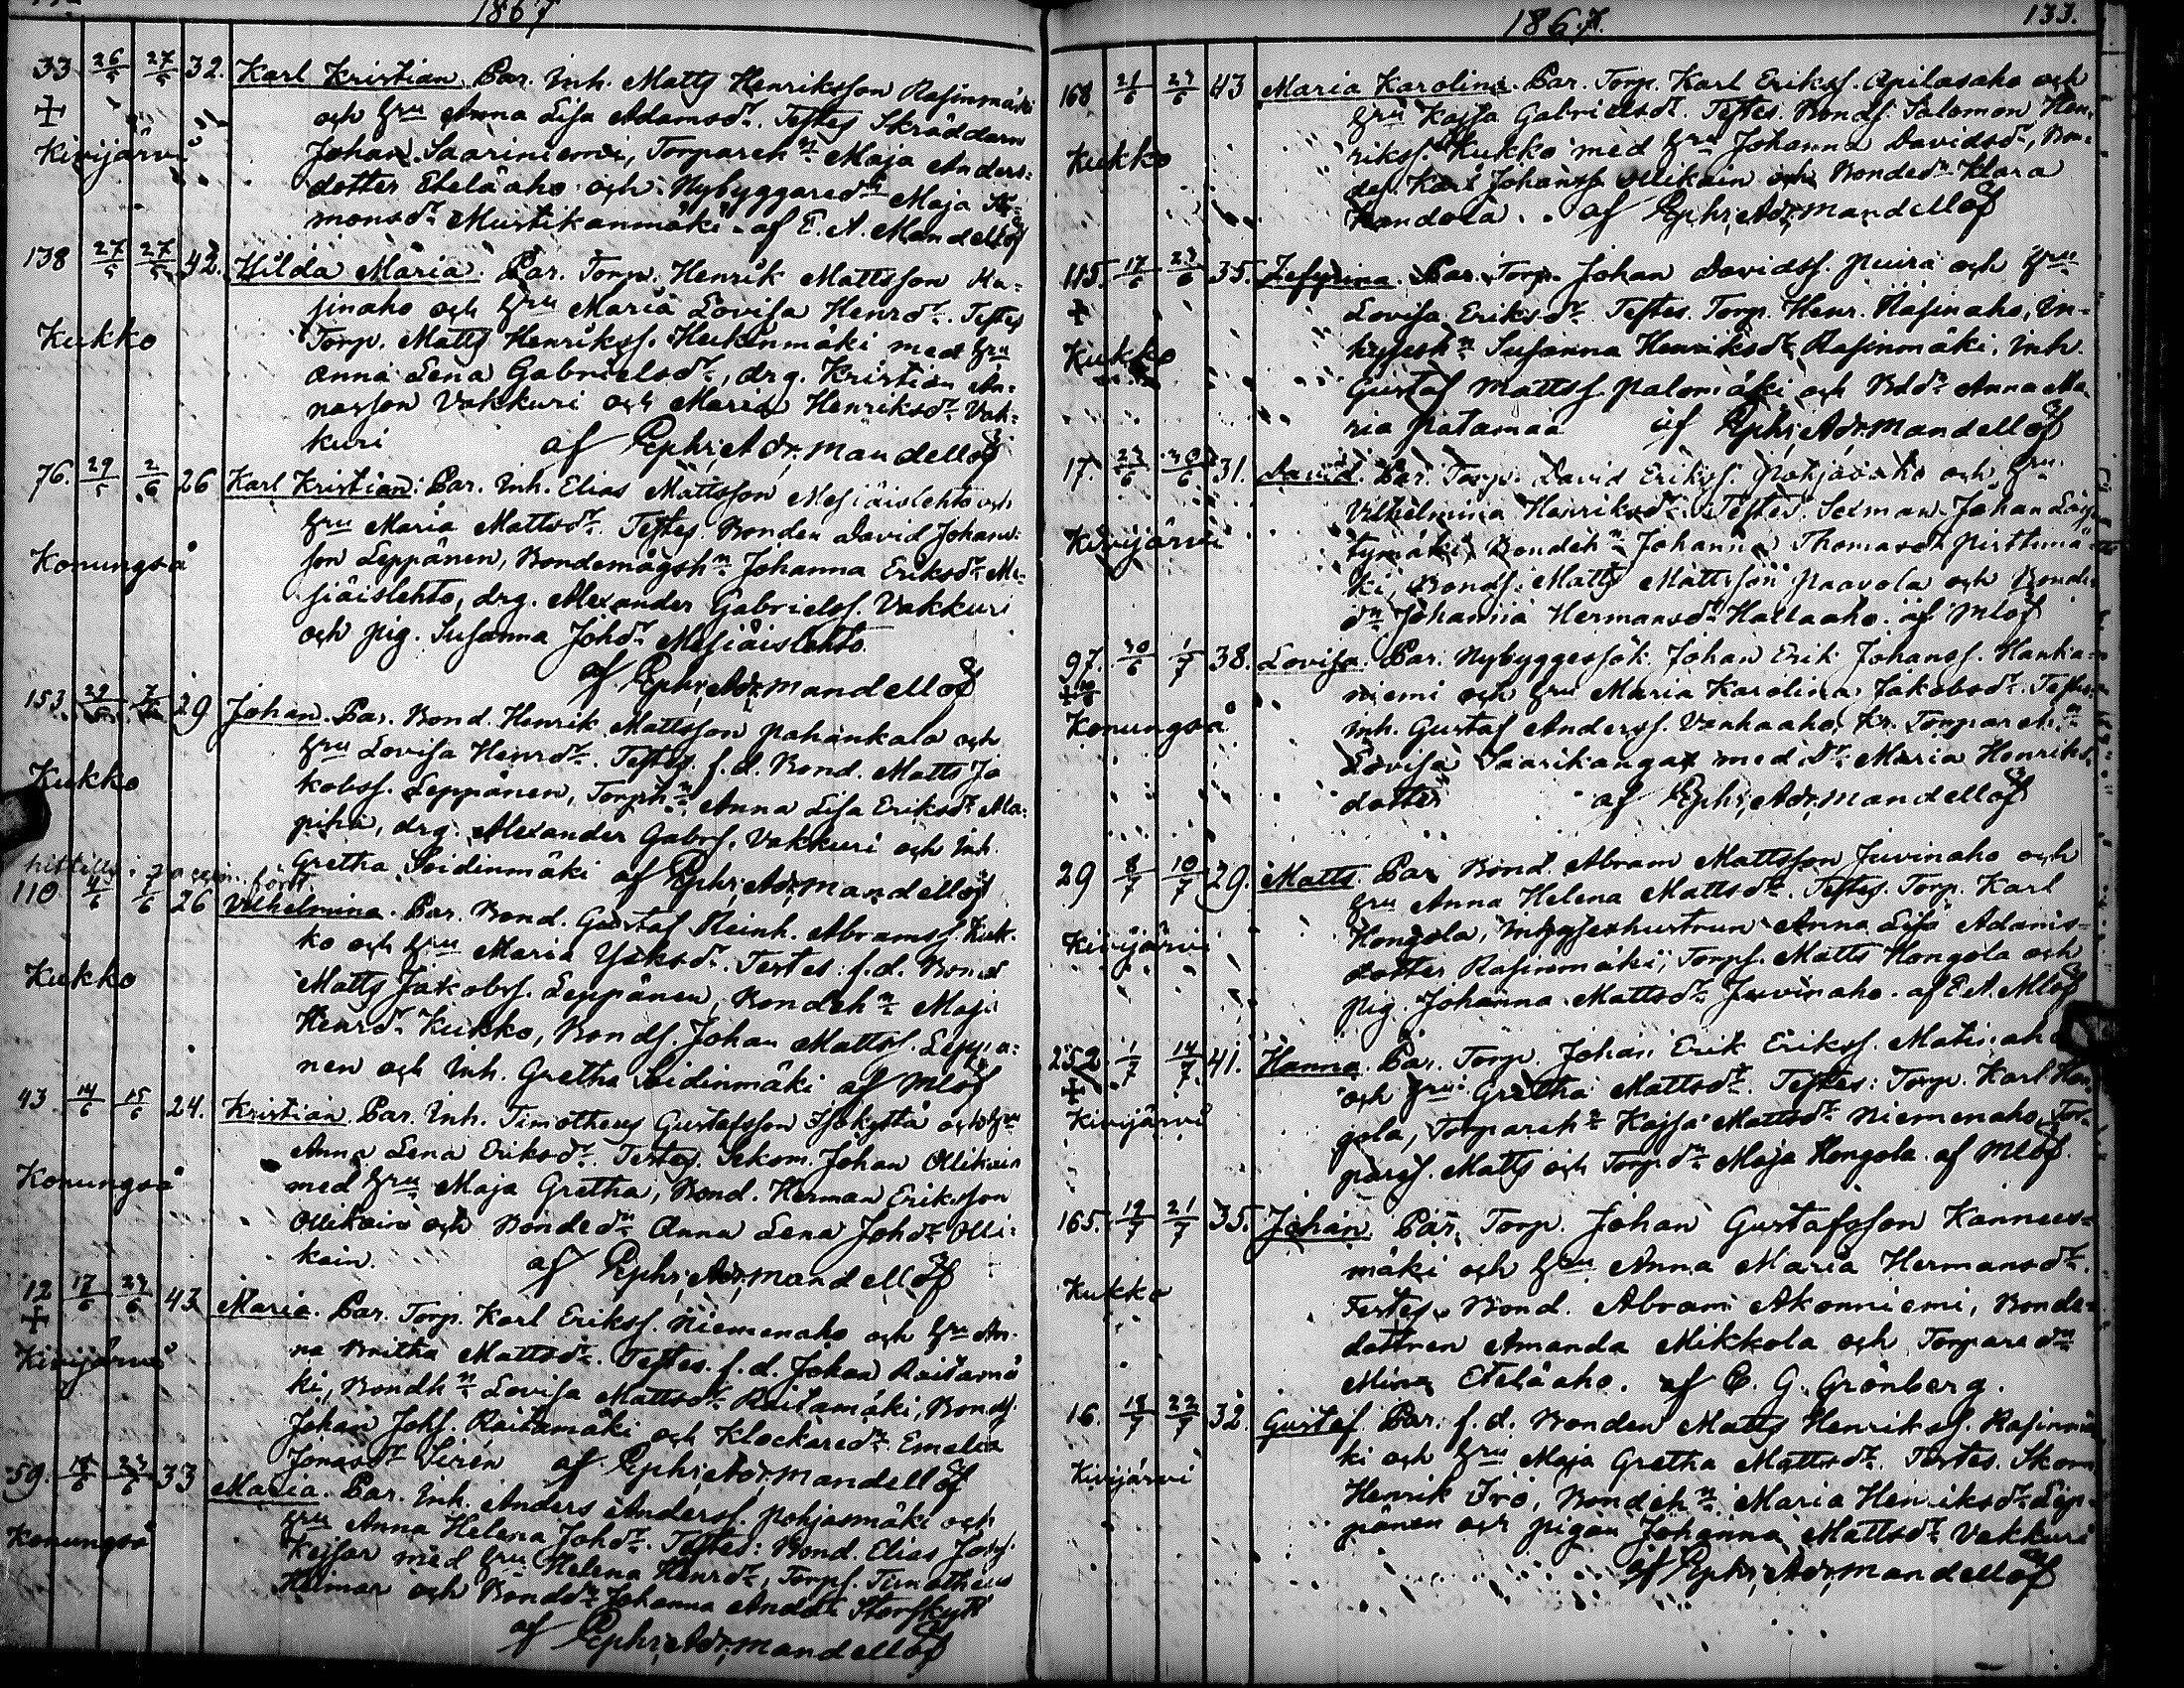 1867
33 26/5 27/5 32. Karl Kristian. Par. Inh. Matts Henriksson Rasinmäki
och hru Anna Lisa Adamsdr. Testes Skräddarn
Johan Saariniemi, Torpareh:n Maja Anders:
Kivijärvi
dotter Eteläaho och Nybyggared:n Maja
monsdr Mustikanmäki. af E. A. Mandellöf
138 27/5 27/5 42. Hilda Maria. Par. Torp. Henrik Mattsson Ra-
sinaho och hru Maria Lovisa Henrdr. Testes
Kukko
Torp. Matts Henrikss. Heikinmäki med hru
Anna Lena Gabrielsdr, drg. Kristian An-
nasson Vakkuri och Maria Henriksdr Vak-
kuri af Ephr. Adr. Mandellöf
76. 29/5 2/6 26 Karl Kristian. Par. Inh. Elias Mattsson Mesiäislehto och
hru Maria Mattsdr. Testes. Bonden David Johans-
Konungså
son Leppänen, Bondemågsh:n Johanna Eriksdr Me-
siäislehto, drg. Alexander Gabrielss. Vakkuri
och pig. Susanna Johdr Mesiäislehto.
af Ephr. Adr. Mandellöf
153. 29 29 Johan. Par. Bond. Henrik Mattsson Pahankala och
hru Lovisa Henrdr. Testes. f.d. Bond. Matts Ja
Kukko
kobss. Leppänen, Torph:n Anna Lisa Eriksdr Ala-
pihа, drg. Alexander Gabrs. Vakkuri och Inh.
Gretha Soidinmäki af Ephr. Adr. Mandellöf
hittills
110 26 Vilhelmina. Par. Bond. Gustaf Heinh. Abramss. Kuk-
ko och hru Maria Jaksdr. Testes: f.d. Bond
Kukko
Matts Jakobss. Leppänen, Bondeh:n Maja
Henrdr Kukko, Bonds. Johan Mattss. Leppä:
nen och Inh. Gretha Soidinmäki af Mlöf
43 14/6 15/6 24. Kristian. Par. Inh. Timotheus Gustafsson Isokyttä och hru
Anna Lena Eriksdr. Testes. Sekom. Johan Ollikain
Konungså
med hru Maja Gretha, Bond. Herman Eriksson
Ollikain och Bonded:n Anna Lena Johdr Olli:
kain. af Ephr. Adr. Mandellöf
12 17/6 23/6 43 Maria. Par. Torp. Karl Erikss. Niemenaho och hru An-
na Britha Mattsdr. Testes. f.d. Johan Raitamä
Kivijärvi
ki, Bondh:n Lovisa Mattsdr Raitamäki, Bonds.
Johan Johs. Raitamäki och Klockared:n Emelia
Jonasdr Sirén af Ephr. Adr. Mandellöf
59. 18/6 23/6 33 Maria. Par. Inh. Anders Anderss. Pohjasmäki och
hru Anna Helena Johdr. Testes: Bond. Elias Johss.
Konungså
Keisar med hru Helena Henrdr, Torps. Timotheus
Heimar och Bondd:n Johanna Anddr Storskytt
af Ephr. Adr. Mandellöf
1867. 133.
168 21/6 23/6 43 Maria Karolina. Par. Torp. Karl Erikss. Apilasaho och
hru Kajsa Gabrielsdr. Testes. Bonds. Salomon Hen-
Kukko
rikss. Kukko med hru Johanna Davidsdr, Bon-
des. Karl Johanss. Ollikain och Bonded:n Klara
Kandola. af Ephr. Adr. Mandellöf
115. 17/6 23/6 35. Zefyrina. Par. Torp. Johan Davidss. Puira och hru
Lovisa Eriksdr. Testes. Torp. Henr. Rasinaho, In-
Kukko
hysesh:n Susanna Henriksdr Rasinmäki, Inh.
Gustaf Mattss. Palomäki och Bdd:n Anna Ma-
ria af Ephr. Adr. Mandellöf
17. 23/6 30/6 31. David. Par. Torp. David Erikss. Pohjoisaho och hru
Vilhelmina Henriksdr. Testes. Sexman Johan
Kivijärvi
Bondeh:n Johanna Thomasdr Pirttimä-
ki, Bonds. Matts Mattsson Paavola och Bonde-
d:n Johanna Hermansdr Hallaaho. af Mlöf
97. 30/6 1/7 38. Lovisa. Par. Nybyggessök. Johan Erik Johanss. Hanka-
niemi och hru Maria Karolina Jakobsdr. Testes.
Konungså
Inh. Gustaf Anderss. Vanhaaho, Kr. Torpareh:n
Lovisa Saarikangas med Dr Maria Henriks-
dotter af Ephr. Adr. Mandellöf
29 8/7 10/7 29. Matts. Par. Bond. Abram Mattsson Juvinaho och
hru Anna Helena Mattsdr. Testes. Torp. Karl
Kivijärvi
Hongola, Inhyseshustrun Anna Lisa Adams-
dotter Rasinmäki, Torps. Matts Hongola och
pig. Johanna Mattsdr Juvinaho. af E. A. Mlöf
252 1/7 14/7 41. Hanna. Par. Torp. Johan Erik Erikss. Matinaho
och hru Gretha Mattsdr. Testes: Torp. Karl Hon-
Kivijärvi
gola, Torpareh:n Kajsa Mattsdr Niemenaho, Tor-
pars. Matts och Torp.d:n Maja Hongola. af Mlöf.
165. 19/7 21/7 35. Johan. Par. Torp. Johan Gustafsson Kannus-
mäki och hru Anna Maria Hermansdr.
Kukko
Testes. Bond. Abram Akonniemi, Bonde-
dottren Amanda Mikkola och Torpared:n
Mina Eteläaho. af C. G. Grönberg.
16. 18/7 22/7 32. Gustaf. Par. f.d. Bonden Matts Henrikss. Rasinmä
ki och hru Maja Gretha Mattsdr. Testes. Skom
Kivijärvi
Henrik Irö, Bondeh:n Maria Henriksdr Lep-
pänen och pigan Johanna Mattsdr Vakkuri
af Ephr. Adr. Mandellöf